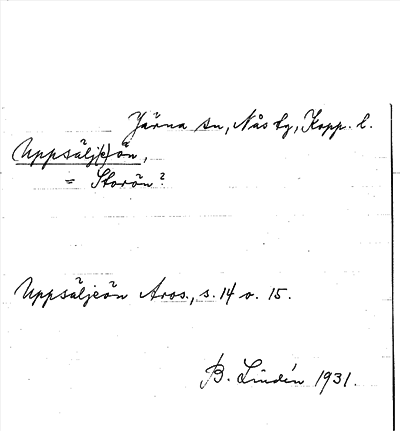 Järna sn, Nås tg, Kopp. l.
Uppsälj(e)ön,
= Storön?
Uppsäljeön Aros., s. 14 o. 15.
B. Lindén 1931.